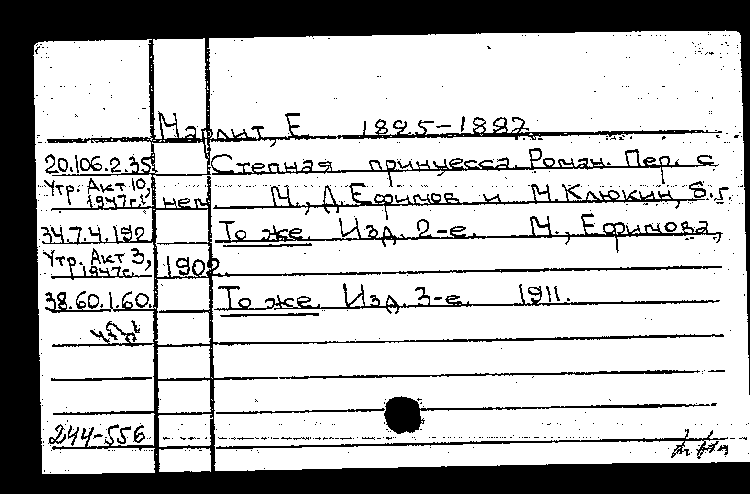 Марлит, Е. 1825-1887
20.106.2.35. Степная принцесса. Роман. Пер. с
Утр. Акт 10, 1947г. нем. М., Д. Ефимов и М. Клюкин, б.г.
34.7.4.192 То же. Изд. 2-е. М., Ефимова,
Утр. Акт 3, 1947г. 1902.
38.60.1.60. То же. Изд. 3-е. 1911.
244-556